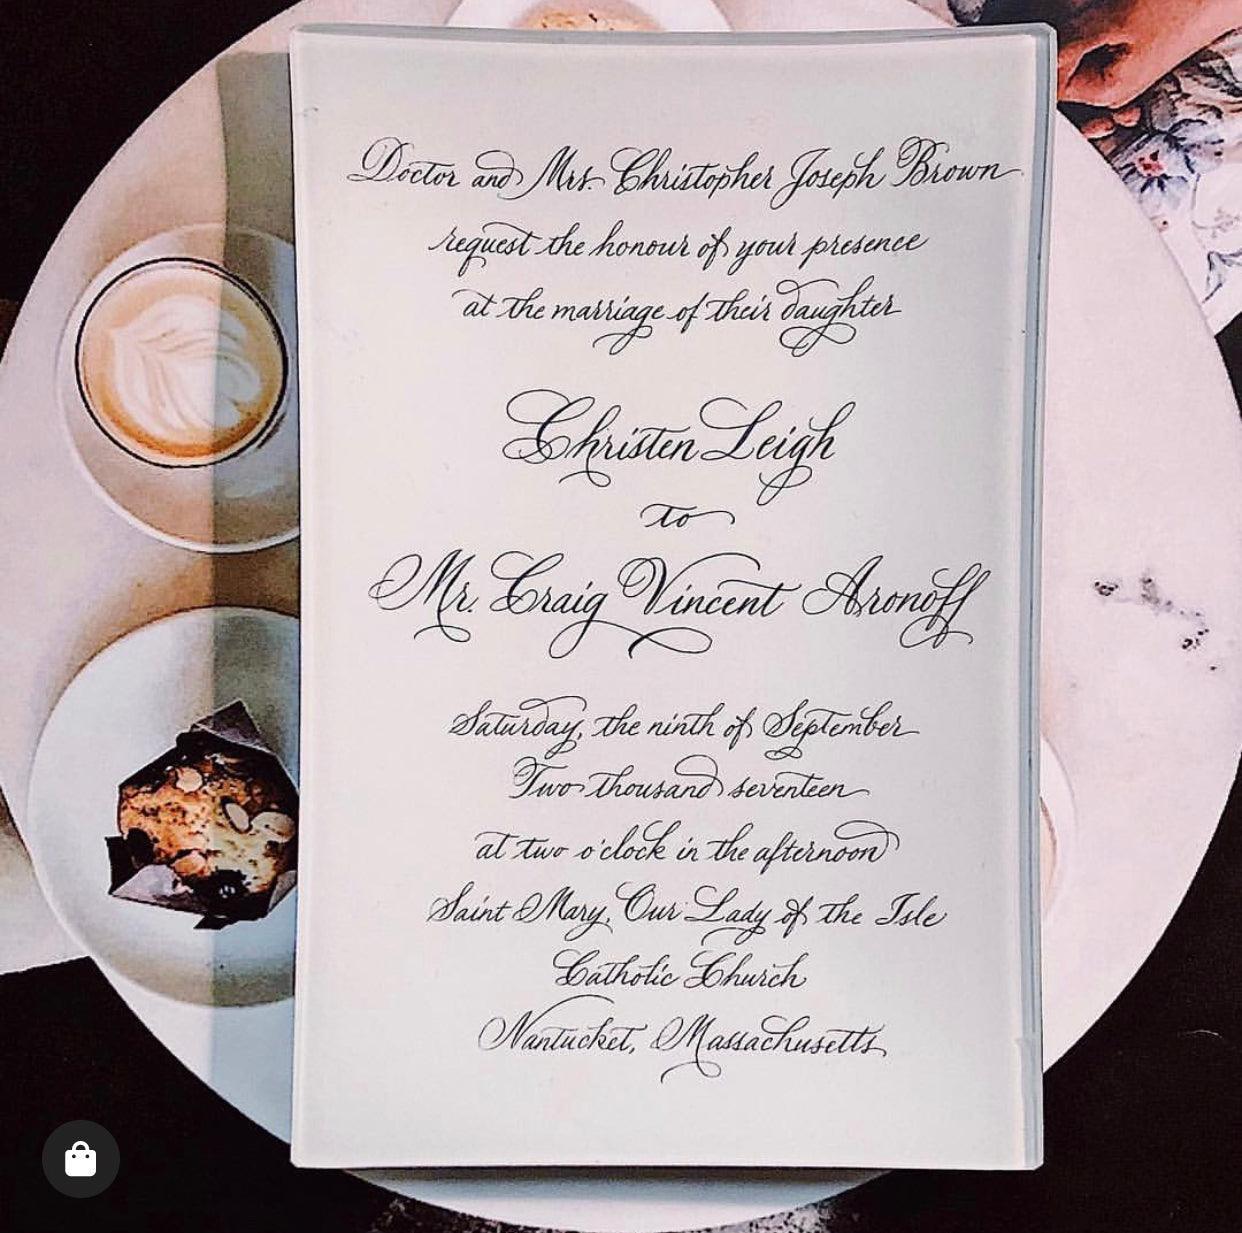 Doctor and Mrs. Christopher Joseph Brown
request the honour of your presence
at the marriage of their daughter
Christen Leigh
to
Mr. Craig Vincent Aronoff
Saturday, the ninth of September
Two thousand seventeen
at two o'clock in the afternoon
Saint Mary, Our Lady of the Isle
Catholic Church
Nantucket, Massachusetts